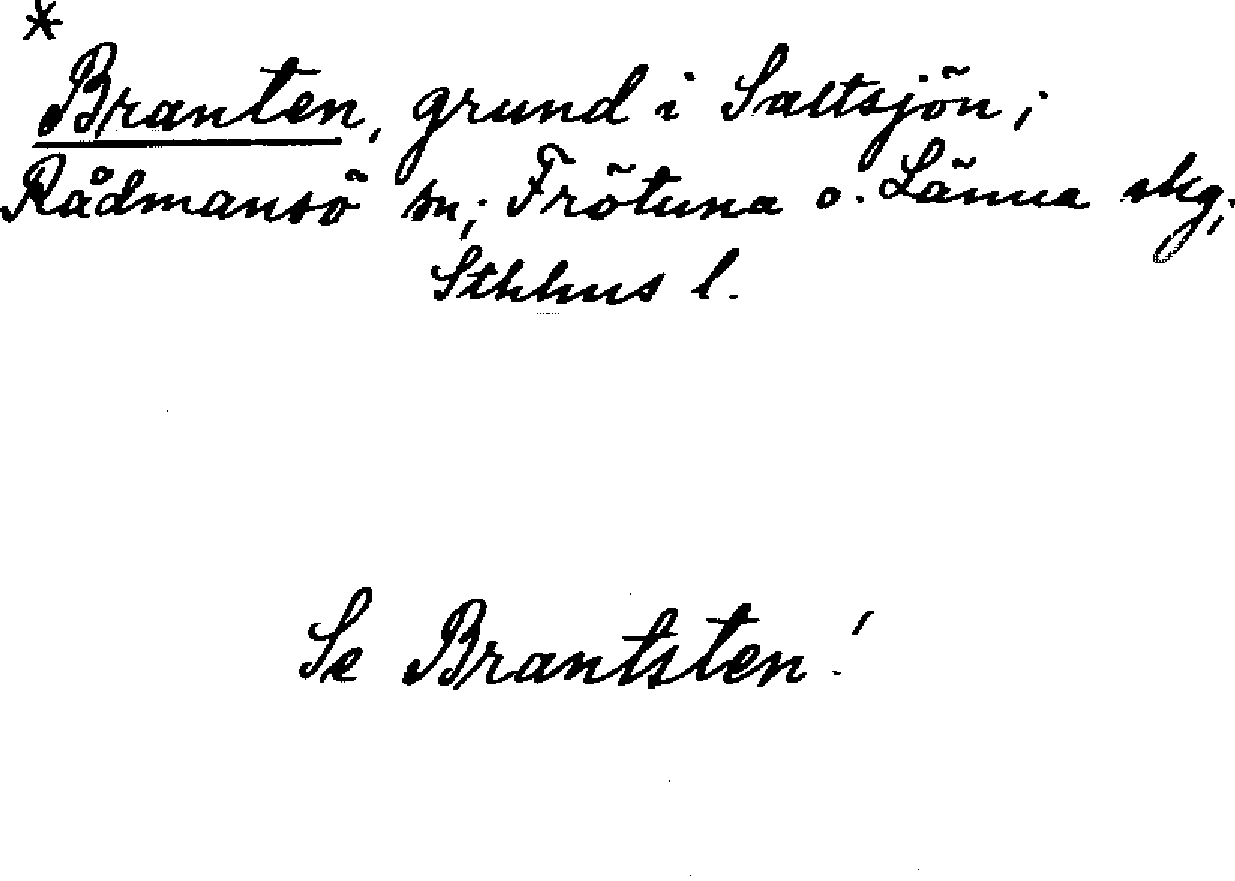 *
Branten, grund i Saltsjön;
Rådmansö sn; Frötuna o. Länna skg;
Sthhus l.
Se Brantsten!